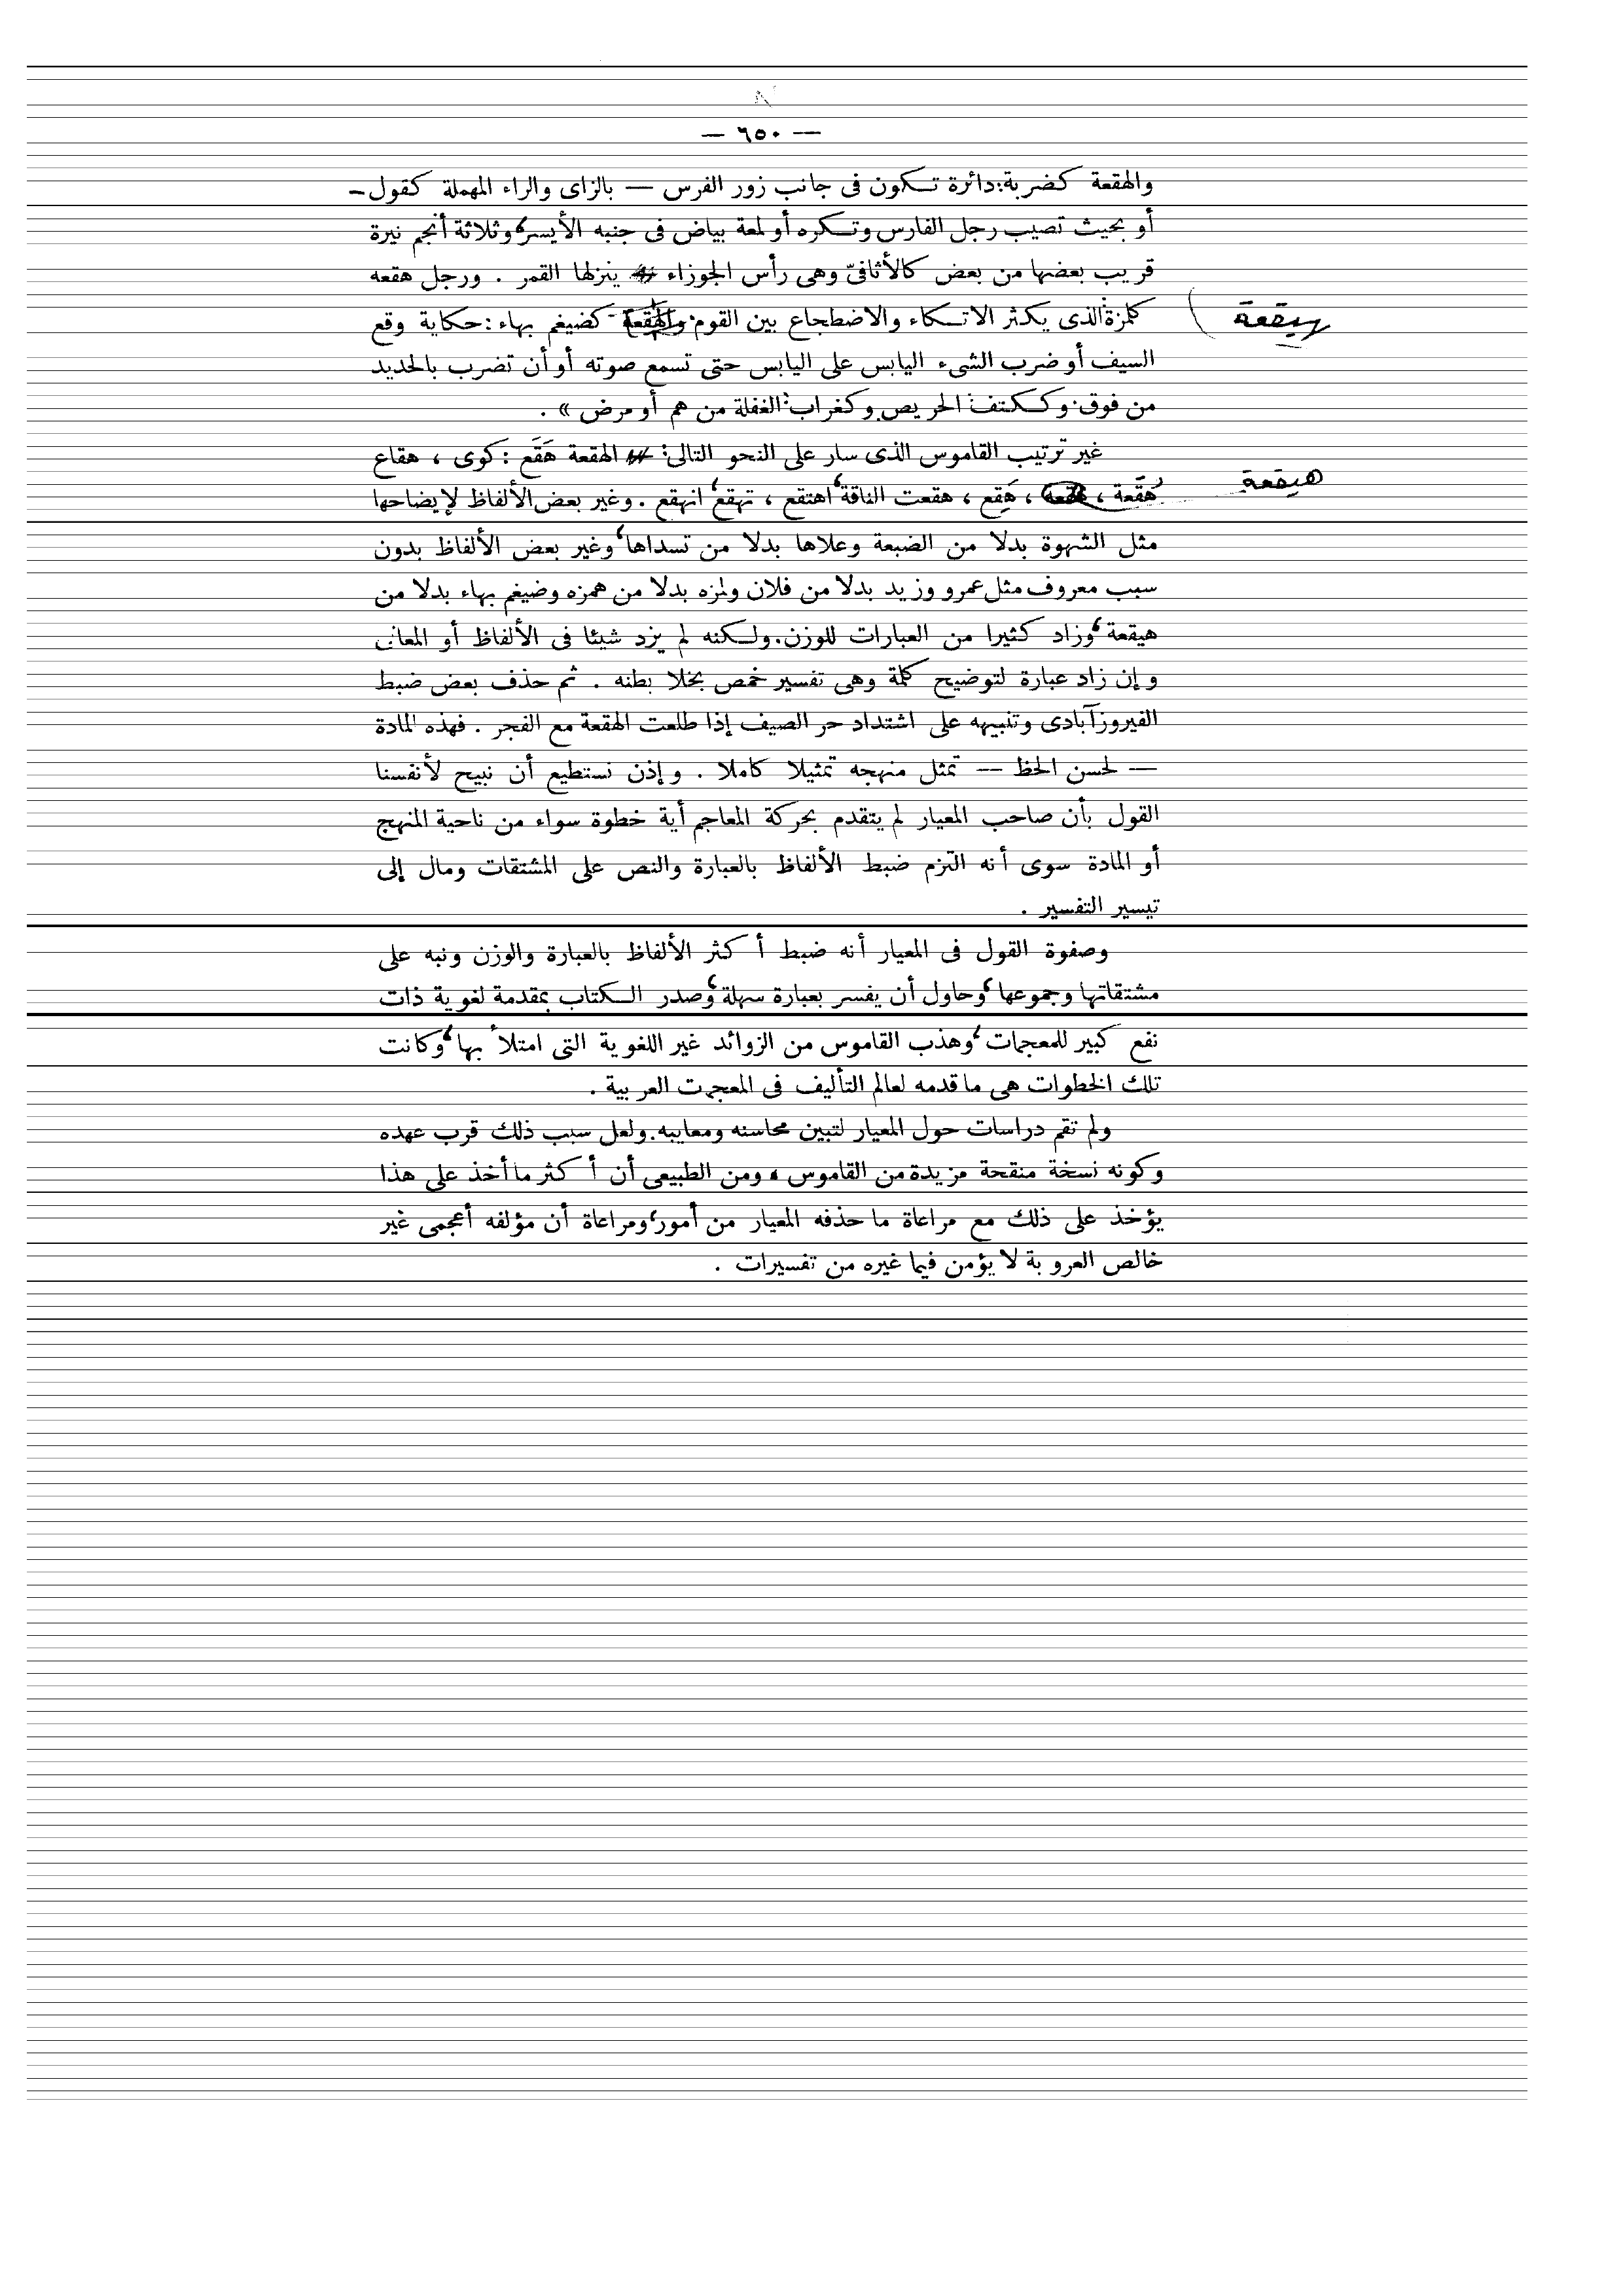 — ٦٥٠ —
والهقعة كضربة: دائرة تكون فى جانب زور الفرس — بالزاى والراء المهملة كقول —
أو بحيث تصيب رجل الفارس وتكره أو لمعة بياض فى جنبه الأيسر، وثلاثة أنجم نيرة
قريب بعضها من بعض كالأثافىّ وهى رأس الجوزاء ينزلها القمر . ورجل هقعه
كلمزة: الذى يكثر الاتكاء والاضطجاع بين القوم. والهقعة كضيغم بهاء : حكاية وقع
هيقعة
السيف أو ضرب الشىء اليابس على اليابس حتى تسمع صوته أو أن تضرب بالحديد
من فوق. وككتف: الحريص. وكغراب: الغفلة من هم أو مرض » .
غير ترتيب القاموس الذى سار على النحو التالى: الهقعة هَقَع : كوى ، هقاع
هُقَعة ، ، هَقِع ، هقعت الناقة، اهتقع ، تهقع، انهقع . وغير بعض الألفاظ لإيضاحها
هيقعة
مثل الشهوة بدلا من الضبعة وعلاها بدلا من تسداها، وغير بعض الألفاظ بدون
سبب معروف مثل عمرو وزيد بدلا من فلان ولمزه بدلا من همزه وضيغم بهاء بدلا من
هيقعة، وزاد كثيرا من العبارات للوزن. ولكنه لم يزد شيئا فى الألفاظ أو المعانى
وإن زاد عبارة لتوضيح كلمة وهى تفسير خمص بخلا بطنه . ثم حذف بعض ضبط
الفيروزآبادى وتنبيهه على اشتداد حر الصيف إذا طلعت الهقعة مع الفجر . فهذه المادة
— لحسن الحظ — تمثل منهجه تمثيلا كاملا . وإذن نستطيع أن نبيح لأنفسنا
القول بأن صاحب المعيار لم يتقدم بحركة المعاجم أية خطوة سواء من ناحية المنهج
أو المادة سوى أنه التزم ضبط الألفاظ بالعبارة والنص على المشتقات ومال إلى
تيسير التفسير .
وصفوة القول فى المعيار أنه ضبط أكثر الألفاظ بالعبارة والوزن ونبه على
مشتقاتها وجموعها، وحاول أن يفسر بعبارة سهلة، وصدر الكتاب بمقدمة لغوية ذات
نفع كبير للمعجمات، وهذب القاموس من الزوائد غير اللغوية التى امتلأ بها، وكانت
تلك الخطوات هى ما قدمه لعالم التأليف فى المعجمت العربية .
ولم تقم دراسات حول المعيار لتبين محاسنه ومعايبه. ولعل سبب ذلك قرب عهده
وكونه نسخة منقحة مزيدة من القاموس ، ومن الطبيعى أن أكثر ما أخذ على هذا
يؤخذ على ذلك مع مراعاة ما حذفه المعيار من أمور، ومراعاة أن مؤلفه أعجمى غير
خالص العروبة لا يؤمن فيما غيره من تفسيرات .